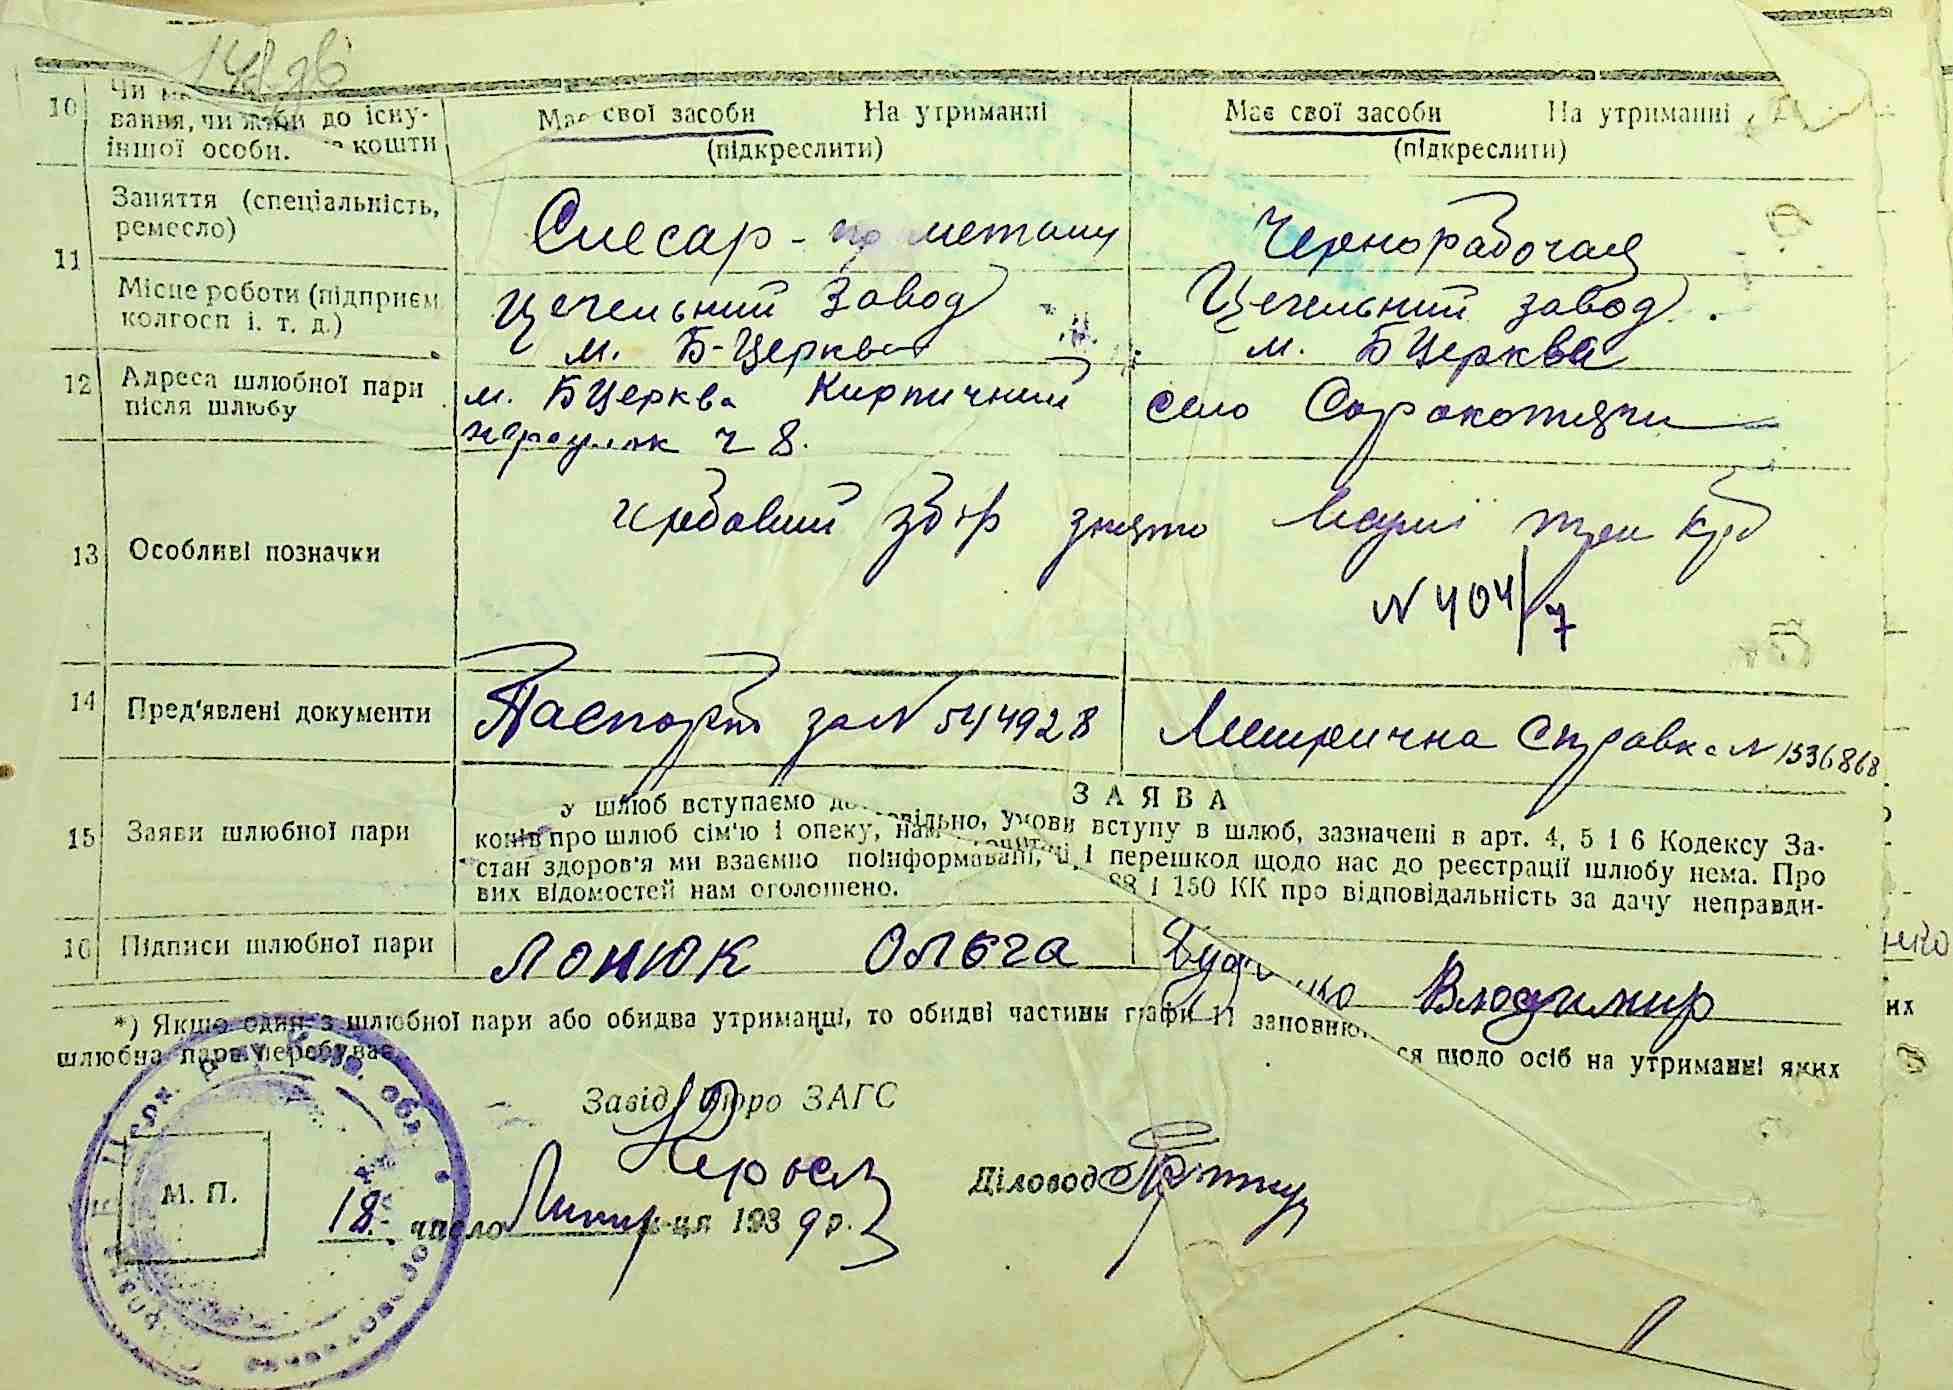 10
вання, чи живи до існу-
іншої особи. кошти
Має свої засоби На утриманні
(підкреслити)
Має свої засоби На утриманні
(підкреслити)
11
Заняття (спеціальність,
ремесло)
Слесар - по металу
Чернорабочая
Місце роботи (підприєм.
колгосп і. т. д.)
Цегельний завод
м. Б-Церква
Цегельний завод.
м. БЦерква
12
Адреса шлюбної пари
після шлюбу
м. БЦерква Кирпичний
переулок ч 8.
село Сорокотяги
13
Особливі позначки
гербовий збір знято Марці три крб
N 404/7
14
Пред'явлені документи
Паспорт за N 544928
Метрична справка N 1536868
15
Заяви шлюбної пари
ЗАЯВА
У шлюб вступаємо
конів про шлюб сім'ю і опеку, нам
умови вступу в шлюб, зазначені в арт. 4, 5 і 6 Кодексу За-
стан здоров'я ми взаємно поінформавані, і перешкод щодо нас до реєстрації шлюбу нема. Про
вих відомостей нам оголошено. 88 і 150 КК про відповідальність за дачу неправди-
16
Підписи шлюбної пари
Лонюк Ольга
Володимир
*) Якщо один з шлюбної пари або обидва утриманці, то обидві частини графи 11 заповнюються щодо осіб на утриманні яких
шлюбна пара перебуває.
Завід. Бюро ЗАГС
Діловод
М. П.
18 число м-ця 1939 р.